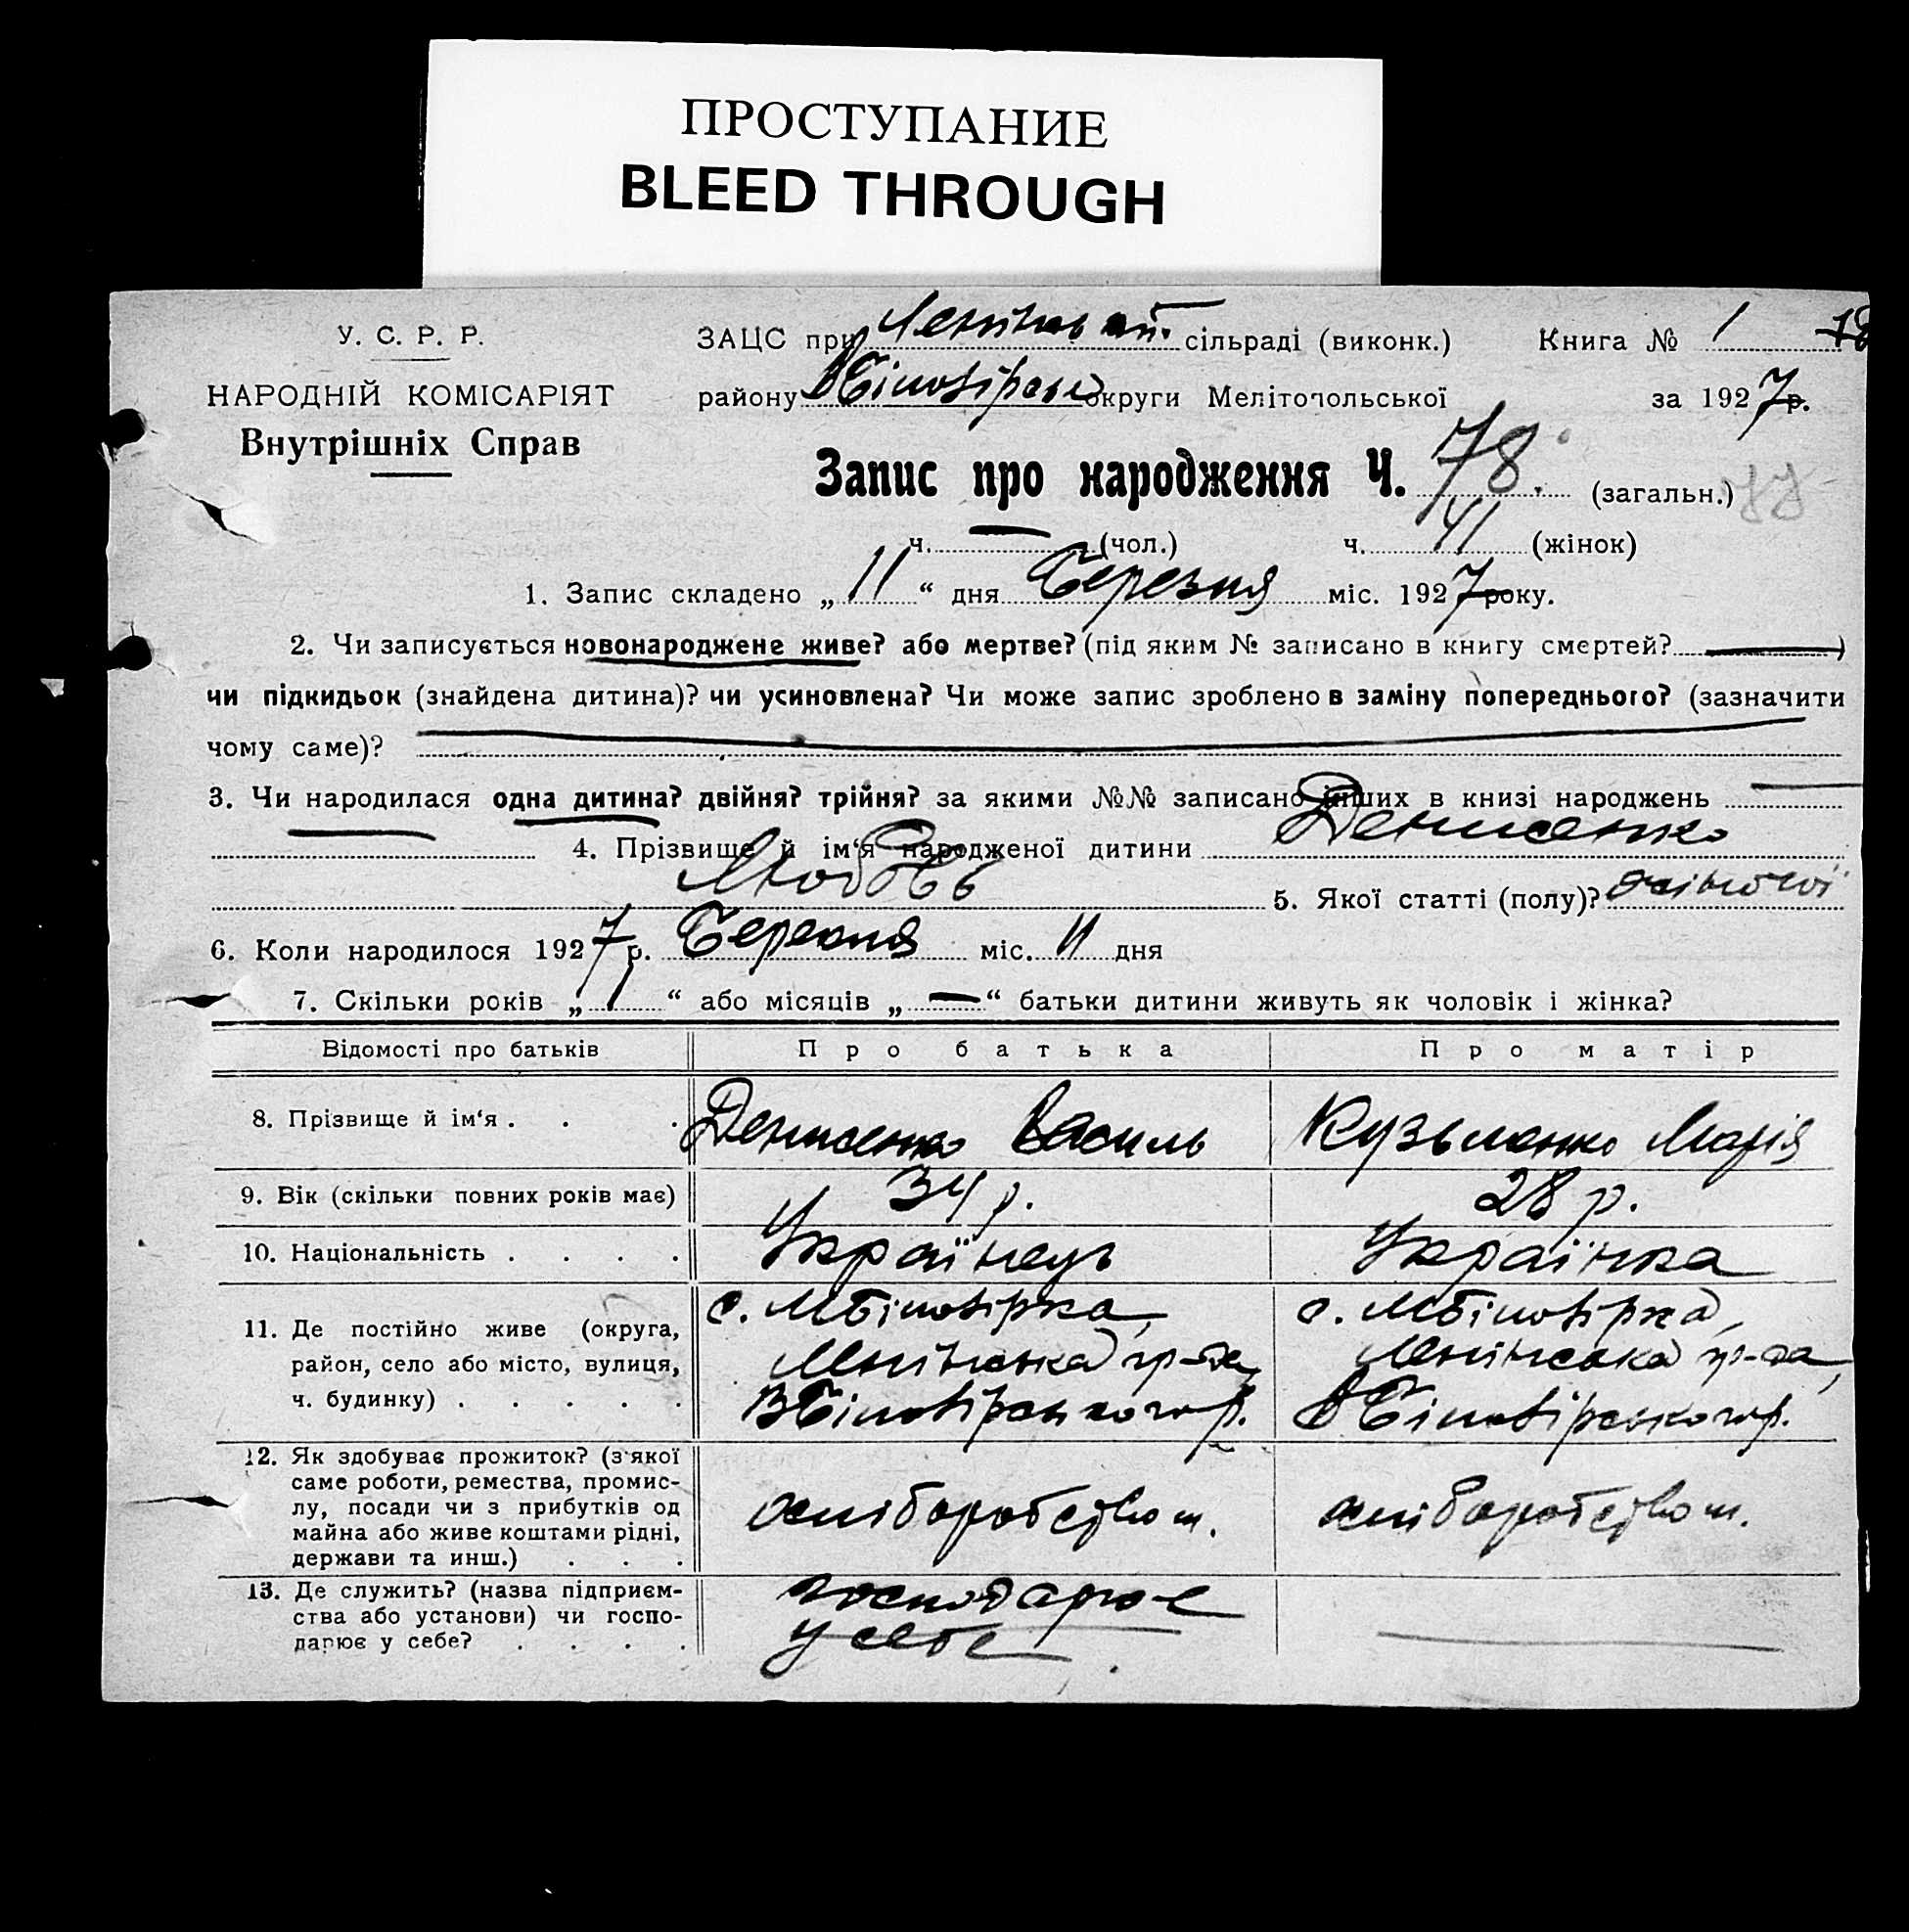 ПРОСТУПАНИЕ
BLEED THROUGH
У. С. Р. Р.
НАРОДНІЙ КОМІСАРІЯТ
Внутрішніх Справ
ЗАЦС при сільраді (виконк.) Книга № 1 78
району округи Мелітопольської за 1927 р.
Запис про народження Ч. 78. (загальн.) 77
ч. — (чол.) ч. 41 (жінок)
1. Запис складено „ 11 “ дня Березня міс. 1927 року.
2. Чи записується новонароджене живе? або мертве? (під яким № записано в книгу смертей? — )
чи підкидьок (знайдена дитина)? чи усиновлена? Чи може запис зроблено в заміну попереднього? (зазначити
чому саме)?
3. Чи народилася одна дитина? двійня? трійня? за якими №№ записано інших в книзі народжень —
4. Прізвище й ім‘я народженої дитини Денисенко
Любовь 5. Якої статті (полу)? жіночої
6. Коли народилося 1927 р. Березня міс. 11 дня
7. Скільки років „ 1 “ або місяців „ — “ батьки дитини живуть як чоловік і жінка?
Відомості про батьків Про батька Про матір
8. Прізвище й ім‘я . . . Денисенко Василь Кузьменко Марія
9. Вік (скільки повних років має) 34 р. 28 р.
10. Національність . . . . Українець Українка
11. Де постійно живе (округа, район, село або місто, вулиця, ч. будинку) . . . . .
с. МБіловірка, Ленінська гр-да, ВБіловірського р.
с. МБіловірка, Ленінська гр-да, ВБіловірського р.
12. Як здобуває прожиток? (з якої
саме роботи, ремества, промис-
лу, посади чи з прибутків од
майна або живе коштами рідні,
держави та инш.) . . .
хліборобством. хліборобством.
13. Де служить? (назва підприєм-
ства або установи) чи госпо-
дарює у себе? . . . .
господарює
у себе —